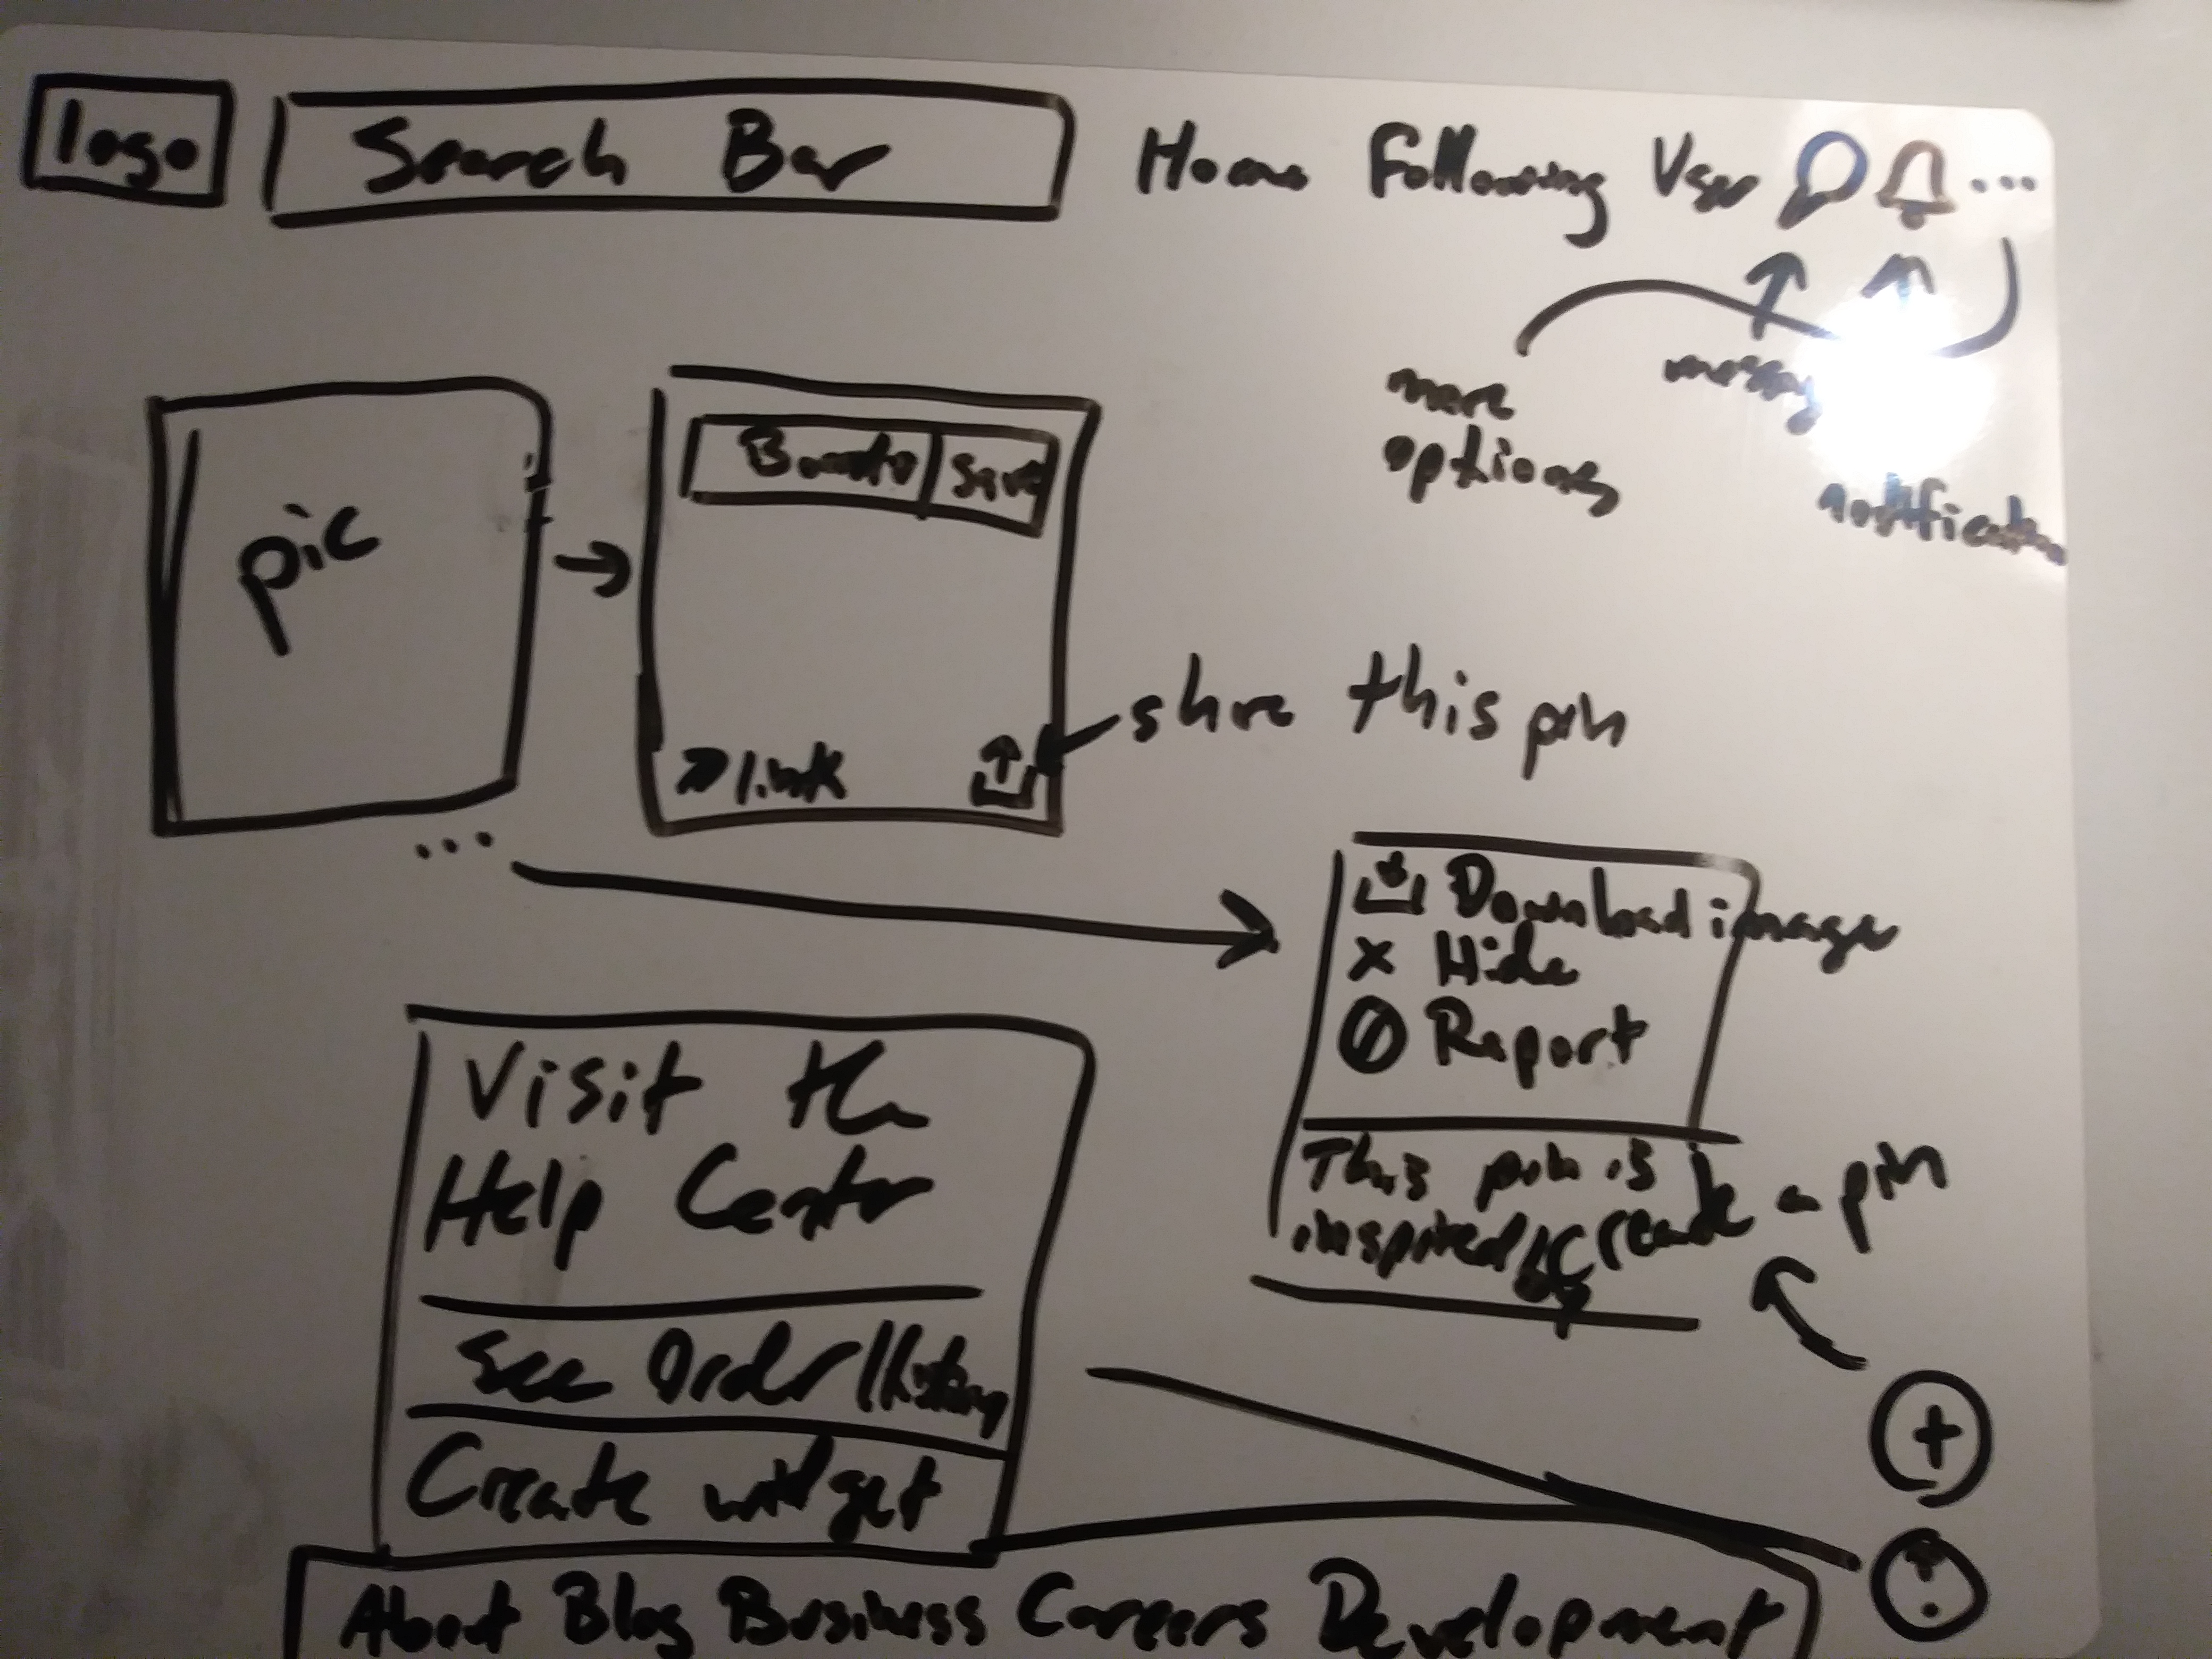 logo
Search Bar
Home Following User ...
more
options
message
notification
pic
Save
link
share this pin
...
Download image
x Hide
Report
This pin is
inspired
create a pin
+
Visit the
Help Center
See
Create widget
About Blog Business Careers Development